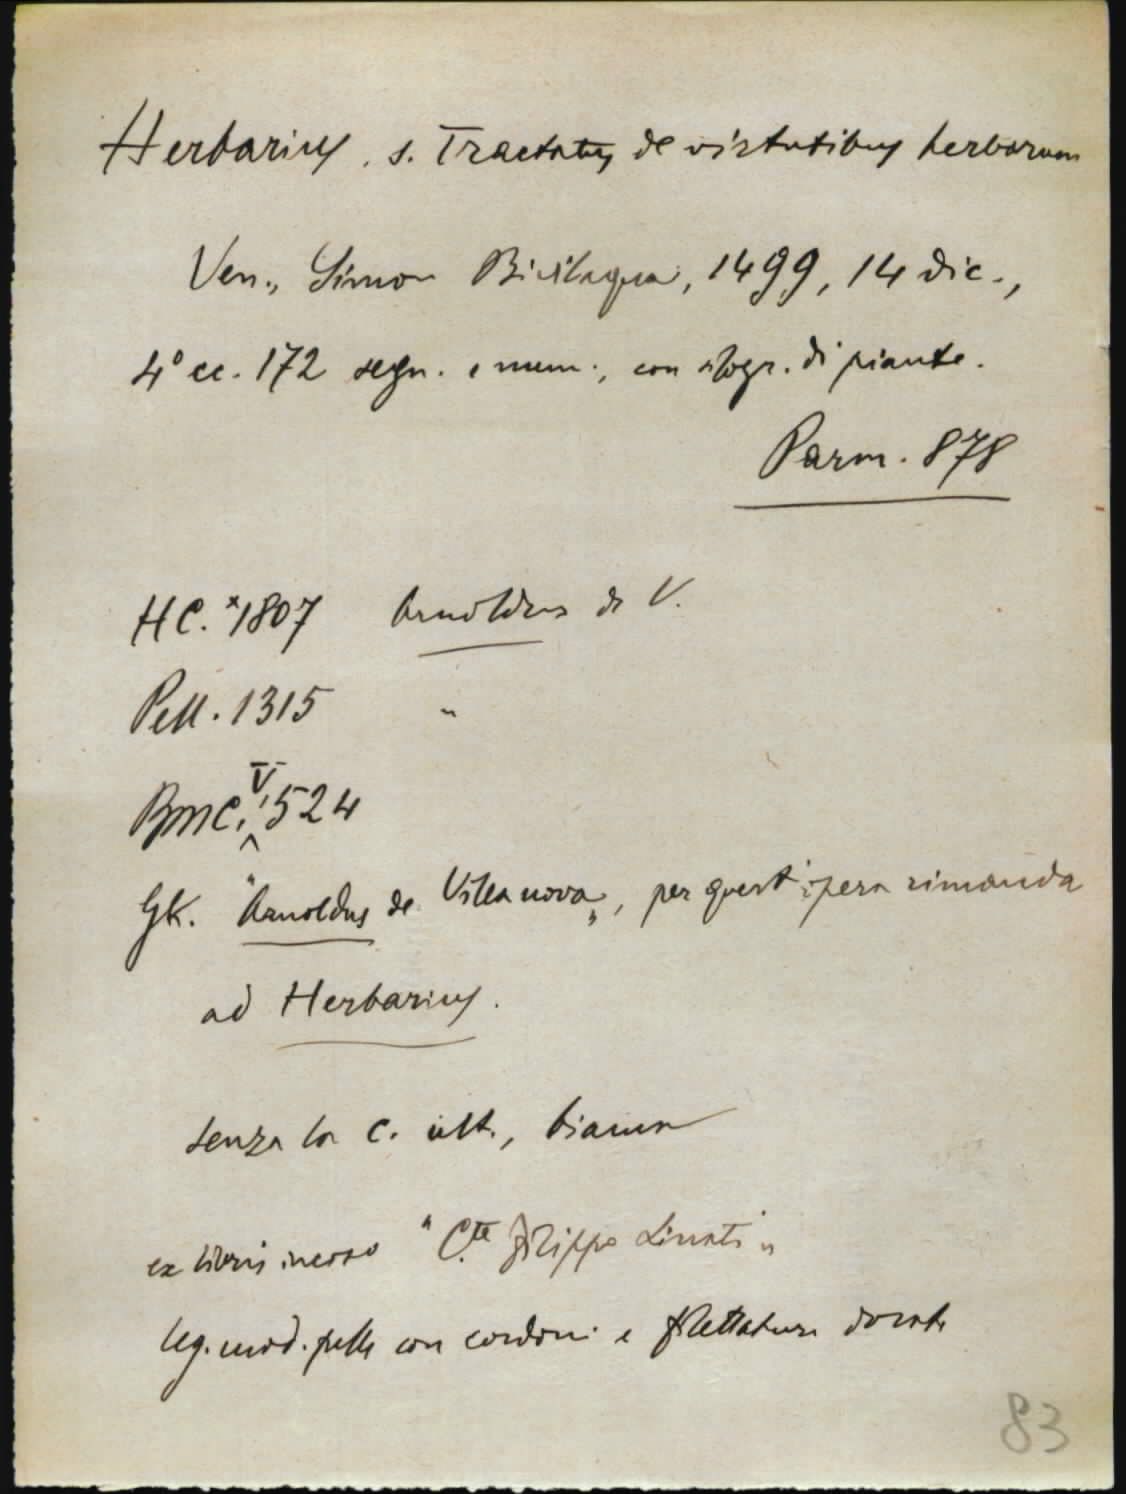 Herbarius, s. Tractatus de virtutibus herbarum
Ven., Simon Bivilaqua, 1499, 14 dic.,
4° cc. 172 segn. e num., con silogr. di piante.
Parm. 878
HC. *1807 Arnoldus de V.
Pell. 1315 "
BMC, V, 524
GK. "Arnoldus de Villanova", per quest'opera rimanda
ad Herbarius.
senza la c. ult., bianca
ex libris inciso "C.te Filippo Linati"
leg. mod. pelle con cordoni e filettature dorate
83